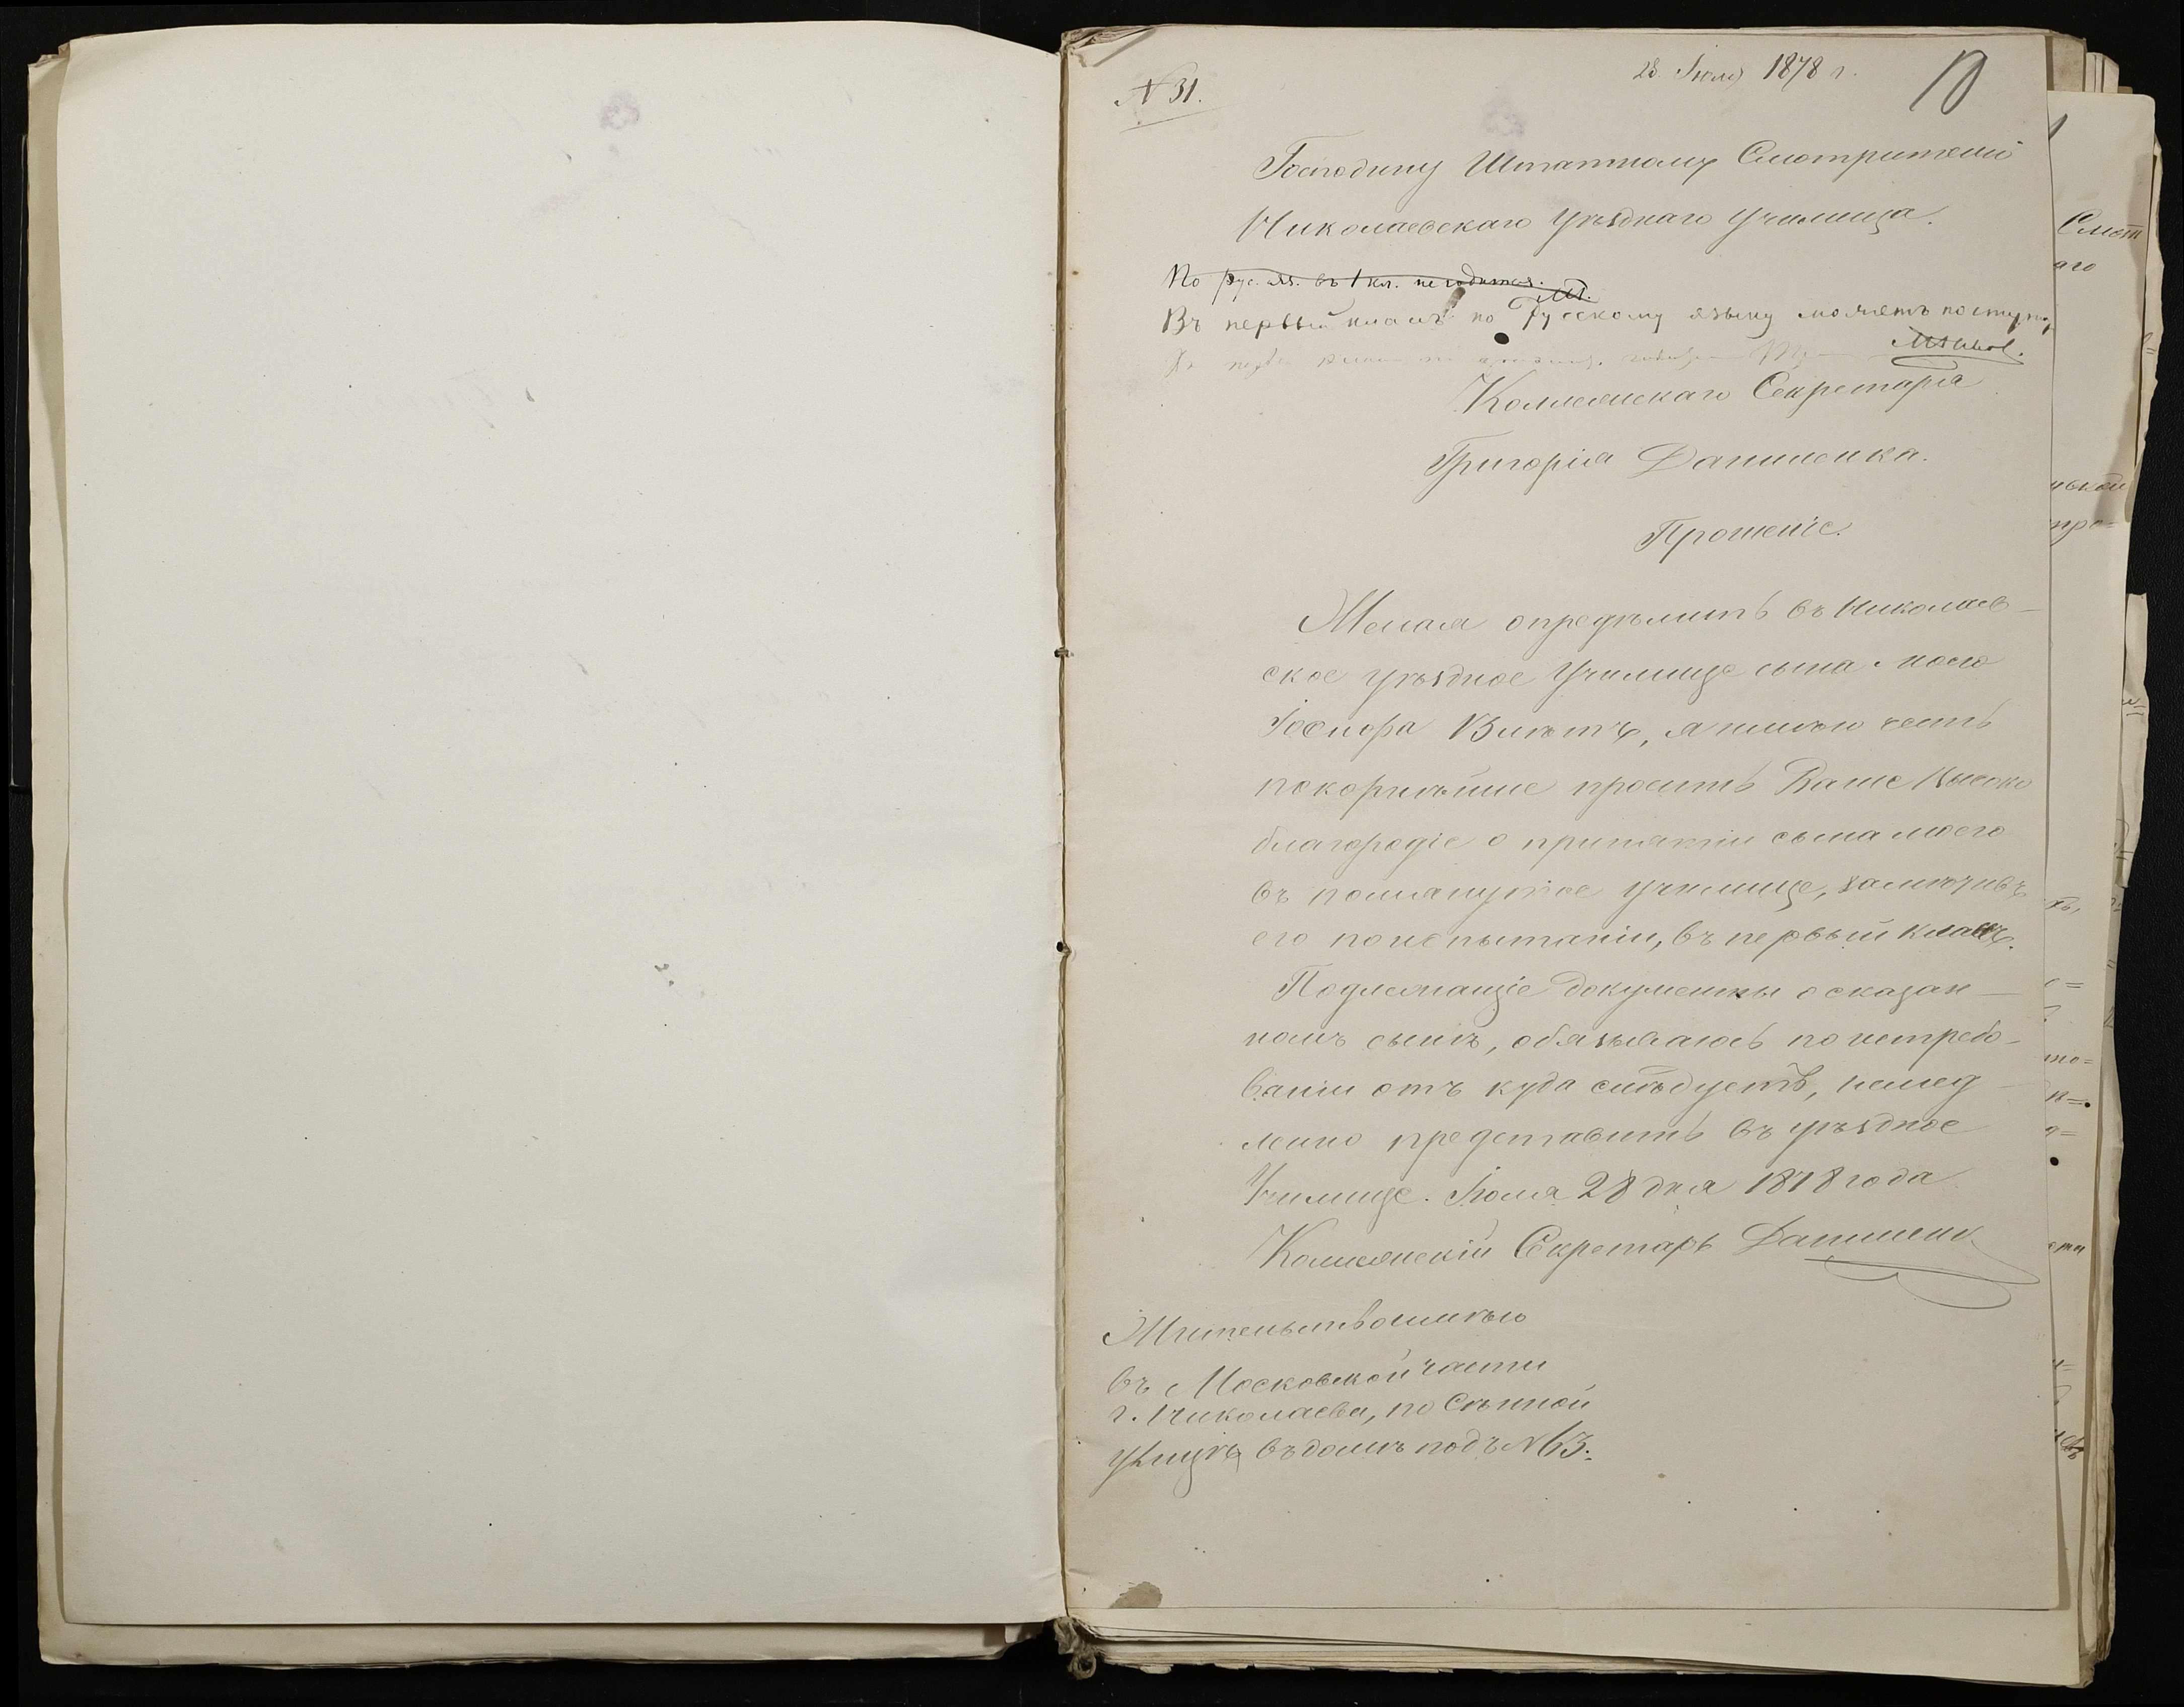 N 31.
28 Іюля 1878 г.
10
Господину Штатному Смотрителю
Николаевскаго уѣзднаго училища.
По рус. яз. въ 1 кл. не годится.
Въ первый классъ по Русскому языку можетъ поступить
Коллежскаго Секретаря
Григорія Даниленка.
Прошеніе.
Желая опредѣлить въ Николаев-
ское уѣздное Училище сына моего
Іосифа, я имѣю честь
покорнѣйше просить Ваше Высоко
благородіе о принятіи сына моего
въ помянутое училище,
его по испытаніи, въ первый классъ.
Подлежащіе документы о сказан-
номъ сынѣ, обязываюсь по истребо-
ваніи отъ куда слѣдуетъ, немед-
ленно представить въ уѣздное
Училище. Іюля 28 дня 1878 года
Коллежскій Секретарь Даниленк
Жительство имѣю
въ Московской части
г. Николаева, по Сѣнной
улицѣ въ домѣ подъ N 63.
Смот
аго